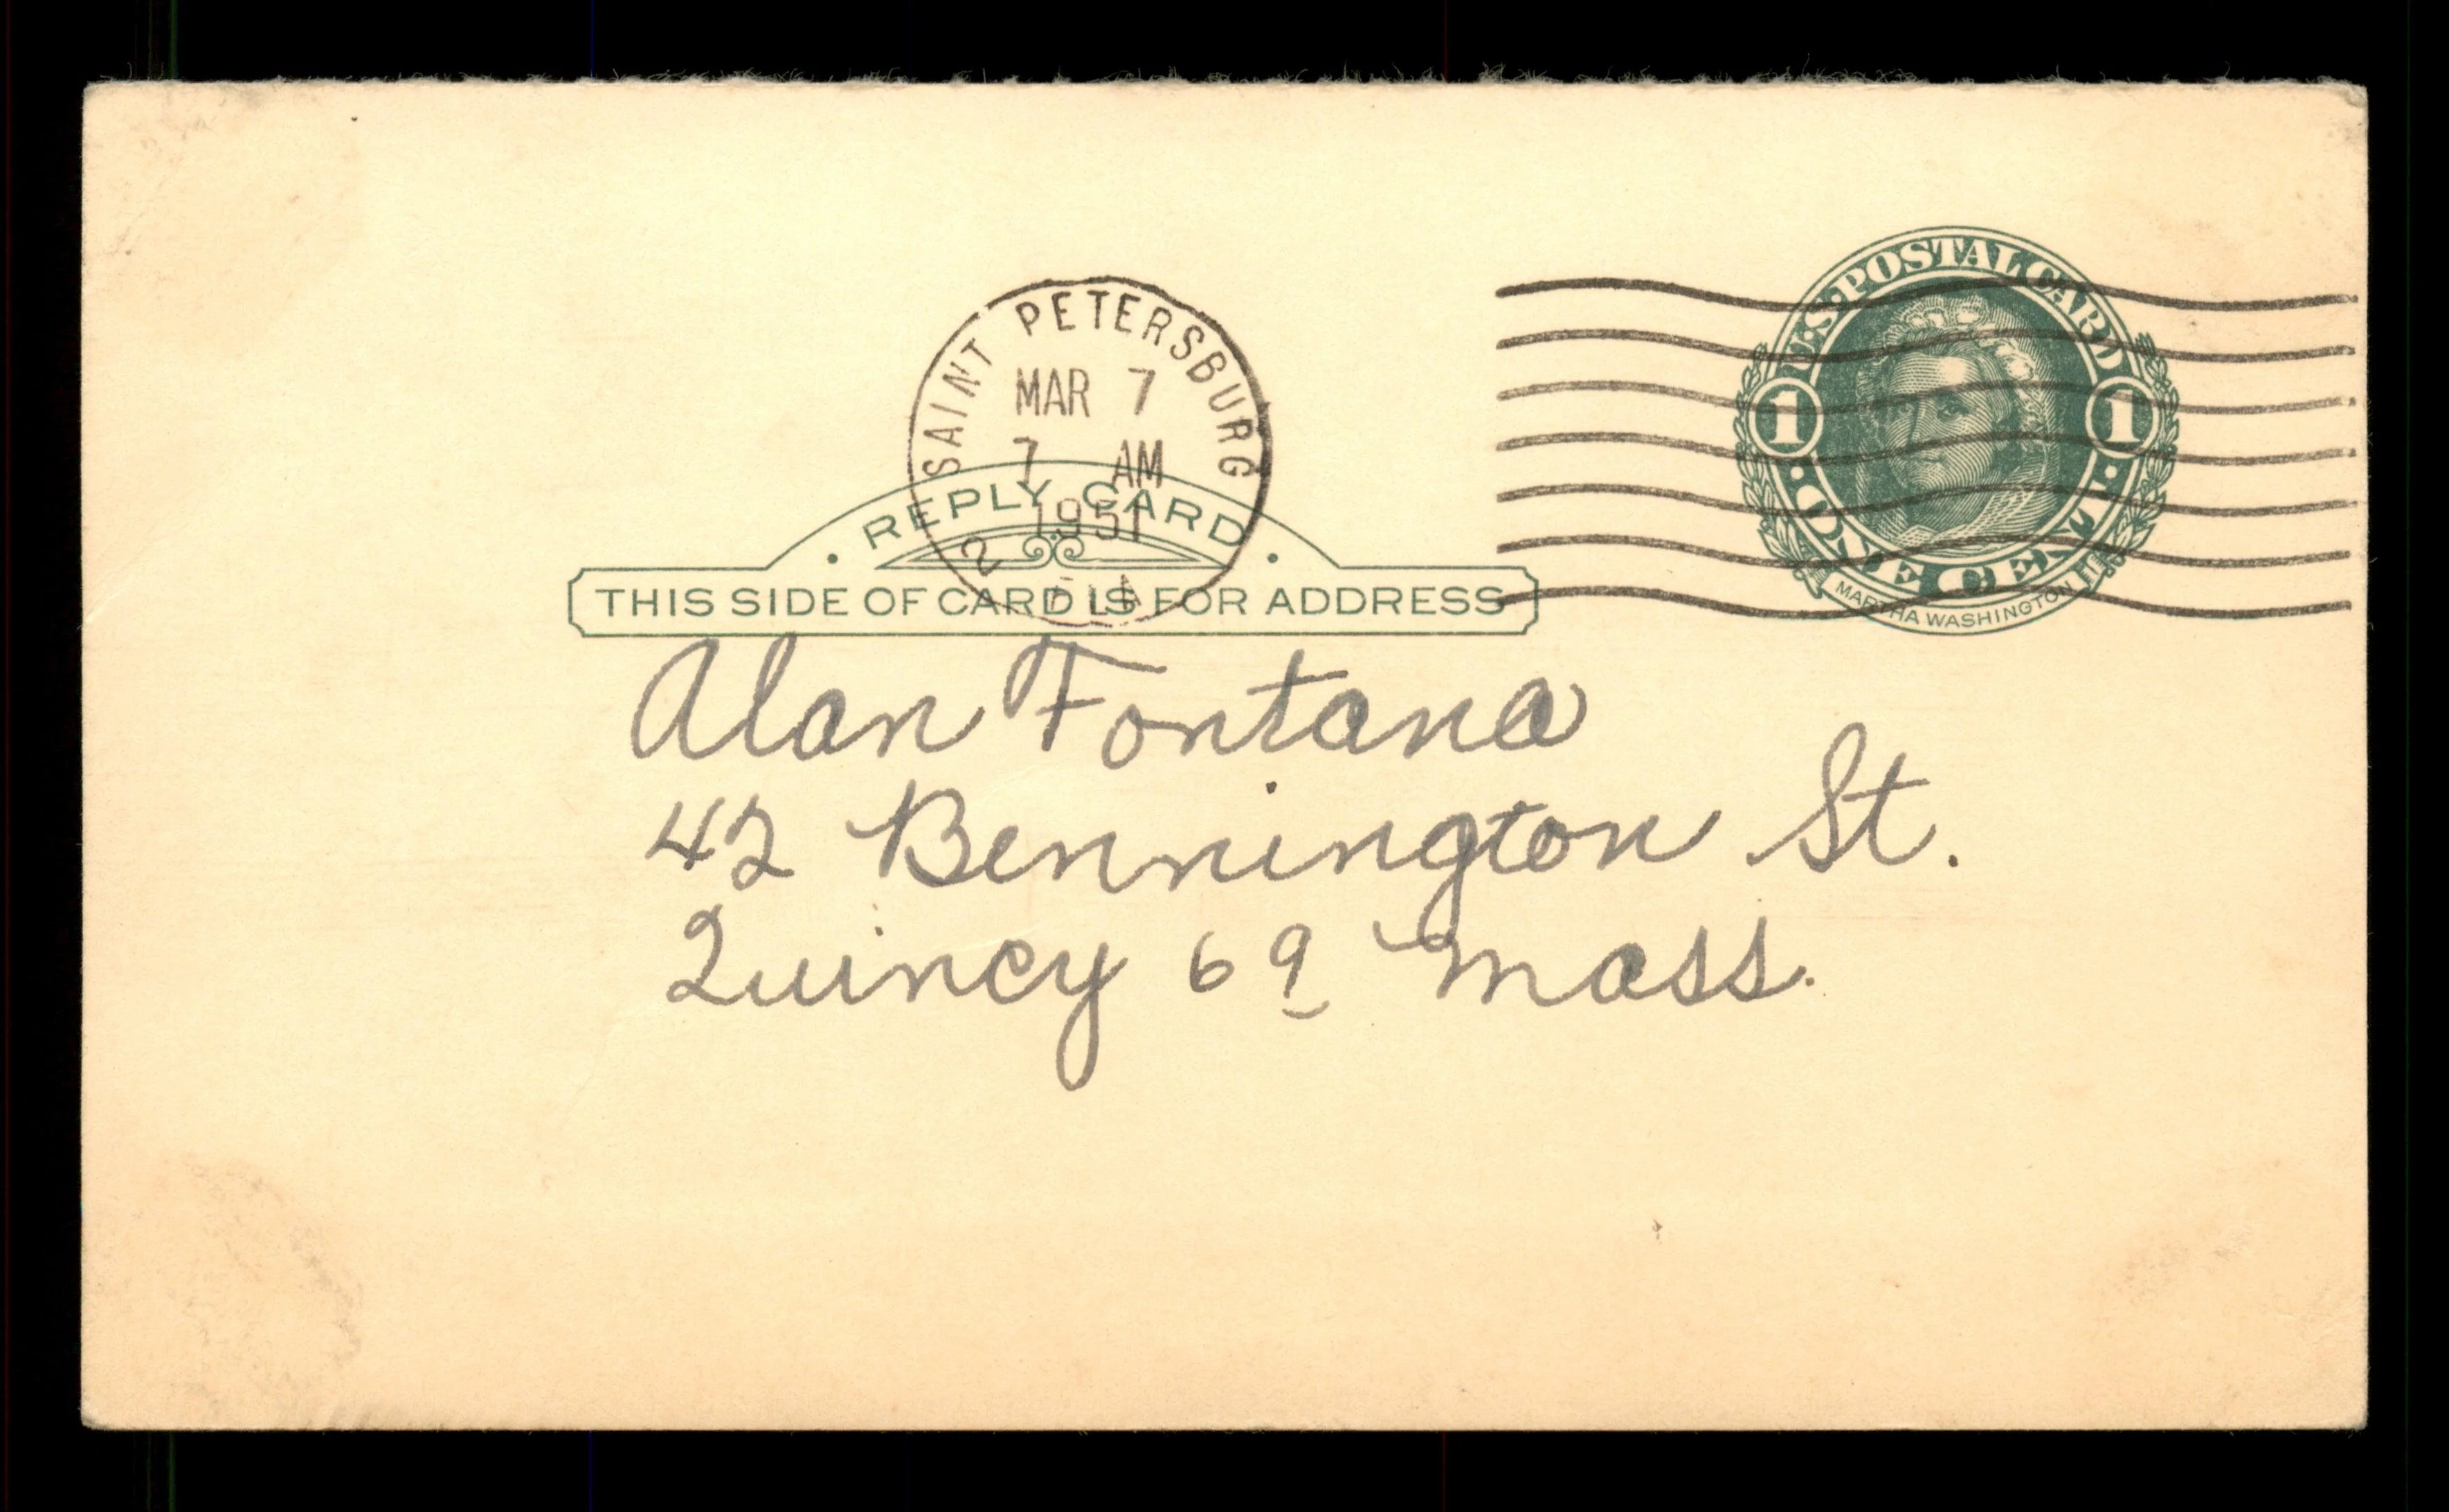 SAINT PETERSBURG
MAR 7
7 AM
1951
2 FLA
U.S. POSTAL CARD
1 1
ONE CENT
MARTHA WASHINGTON
REPLY CARD
THIS SIDE OF CARD IS FOR ADDRESS
Alan Fontana
42 Bennington St.
Quincy 69 Mass.